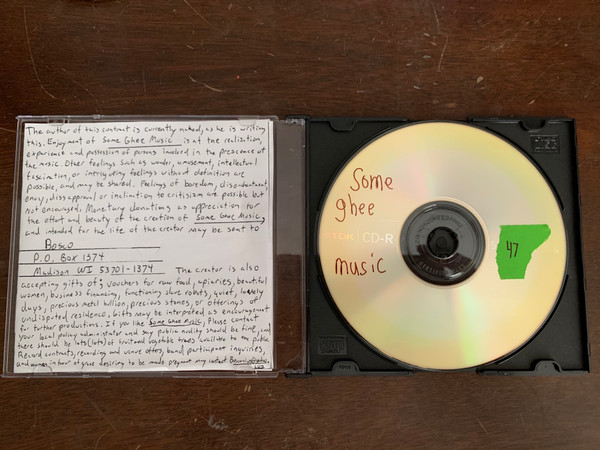 The author of this contract is currently naked, as he is writing
this. Enjoyment of Some Ghee Music is at the realization,
experience and possession of persons involved in the presence of
the music. Other feelings such as wonder, amusement, intellectual
fascination, or intriguing feelings without definition are
possible, and may be shared. Feelings of boredom,
envy, dissapproval or inclination to critisizm are possible but
not encouraged. Monetary donations as appreciation for
the effort and beauty of the creation of Some Ghee Music,
and intended for the life of the creator may be sent to
Bosco
P.O. Box 1374
Madison WI 53701-1374 The creator is also
accepting gifts of vouchers for raw food, apiaries, beautiful
women, business financing, functioning slave robots, quiet, lovely
days, precious metal bullion, precious stones, or offerings of
undisputed residence. Gifts may be interpreted as encouragement
for further productions. If you like Some Ghee Music, Please contact
your local policy administrator and say public nudity should be fine, and
there should be lots (lots) of fruit and vegetable trees available to the public
Record contracts, recording and venue offers, band participant inquiries,
and women in favor of desiring to be made pregnant may contact
Some
ghee
CD-R
music
47